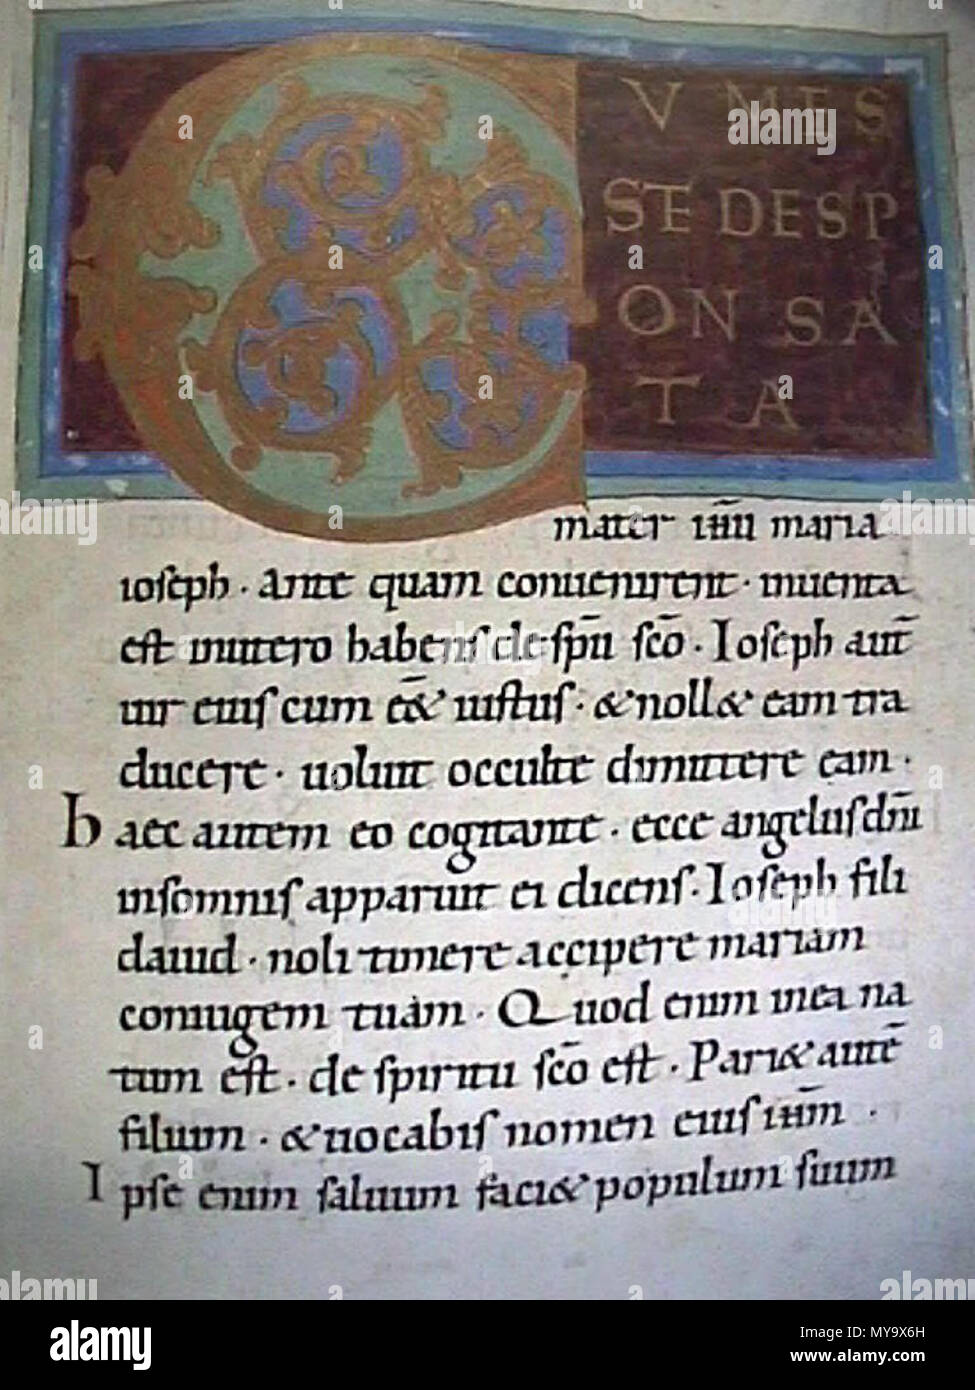 CVMES
SEDESP
ONSA
TA
mater ihu maria
ioseph · Ante quam conuenirent · inuenta
est inutero habens de spū scō · Ioseph aut̄
uir eius cum eēt iustus · & noll& eam tra
ducere · uoluit occulte dimittere eam ·
haec autem eo cogitante · ecce angelus dn̄i
insomnis apparuit ei dicens · Ioseph fili
dauid · noli timere accipere mariam
coniugem tuam · Quod enim inea na
tum est · de spiritu scō est · Pari& autē
filium · & uocabis nomen eius ihm̄ ·
Ipse enim saluum faci& populum suum
alamy
Image ID: MY9X6H
www.alamy.com